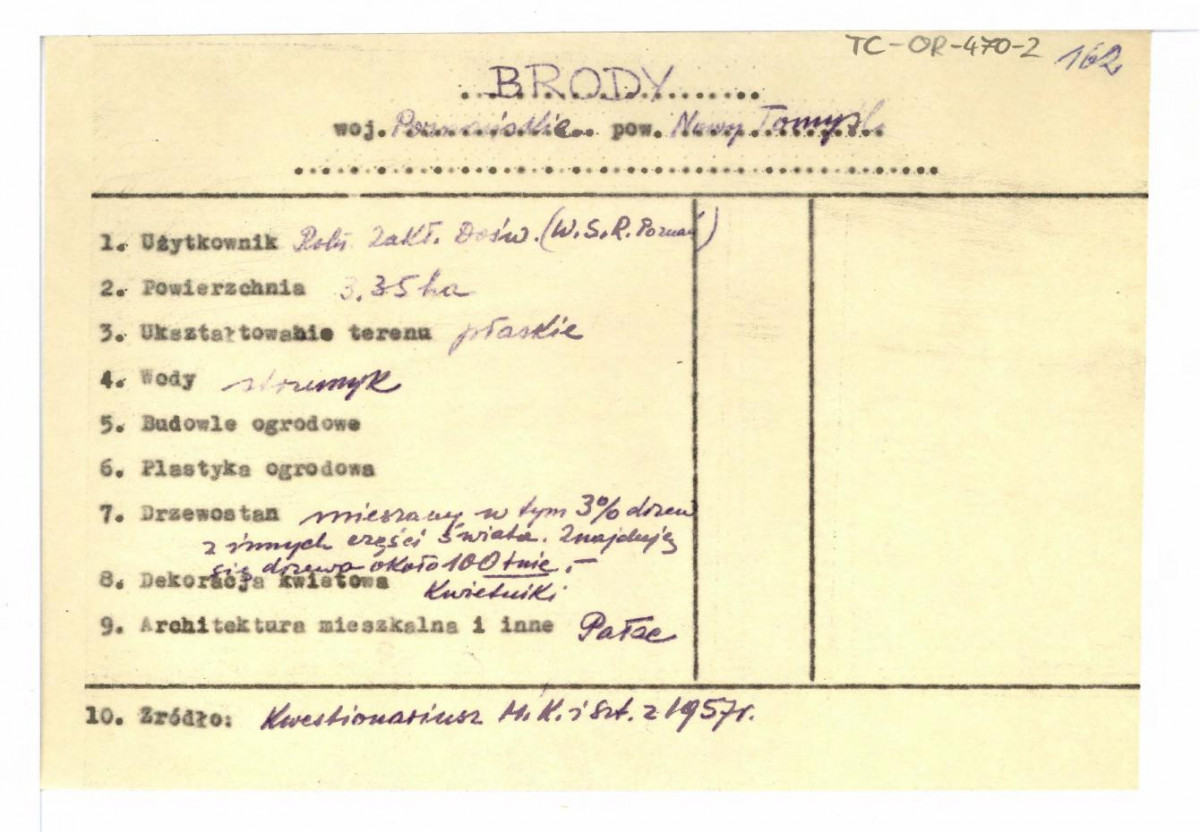 TC-OR-470-2 162
BRODY
woj. Poznańskie pow. Nowy Tomyśl
1. Użytkownik Roln. Zakł. Dośw. (W.S.R. Poznań)
2. Powierzchnia 3.35 ha
3. Ukształtowanie terenu płaskie
4. Wody strumyk
5. Budowle ogrodowe
6. Plastyka ogrodowa
7. Drzewostan mieszany w tym 3% drzew
z innych części świata. Znajdują
się drzewa około 100 tnie.-
8. Dekoracja kwiatowa Kwietniki
9. Architektura mieszkalna i inne Pałac
10. Źródło: Kwestionariusz M.K. i Szt. z 1957r.